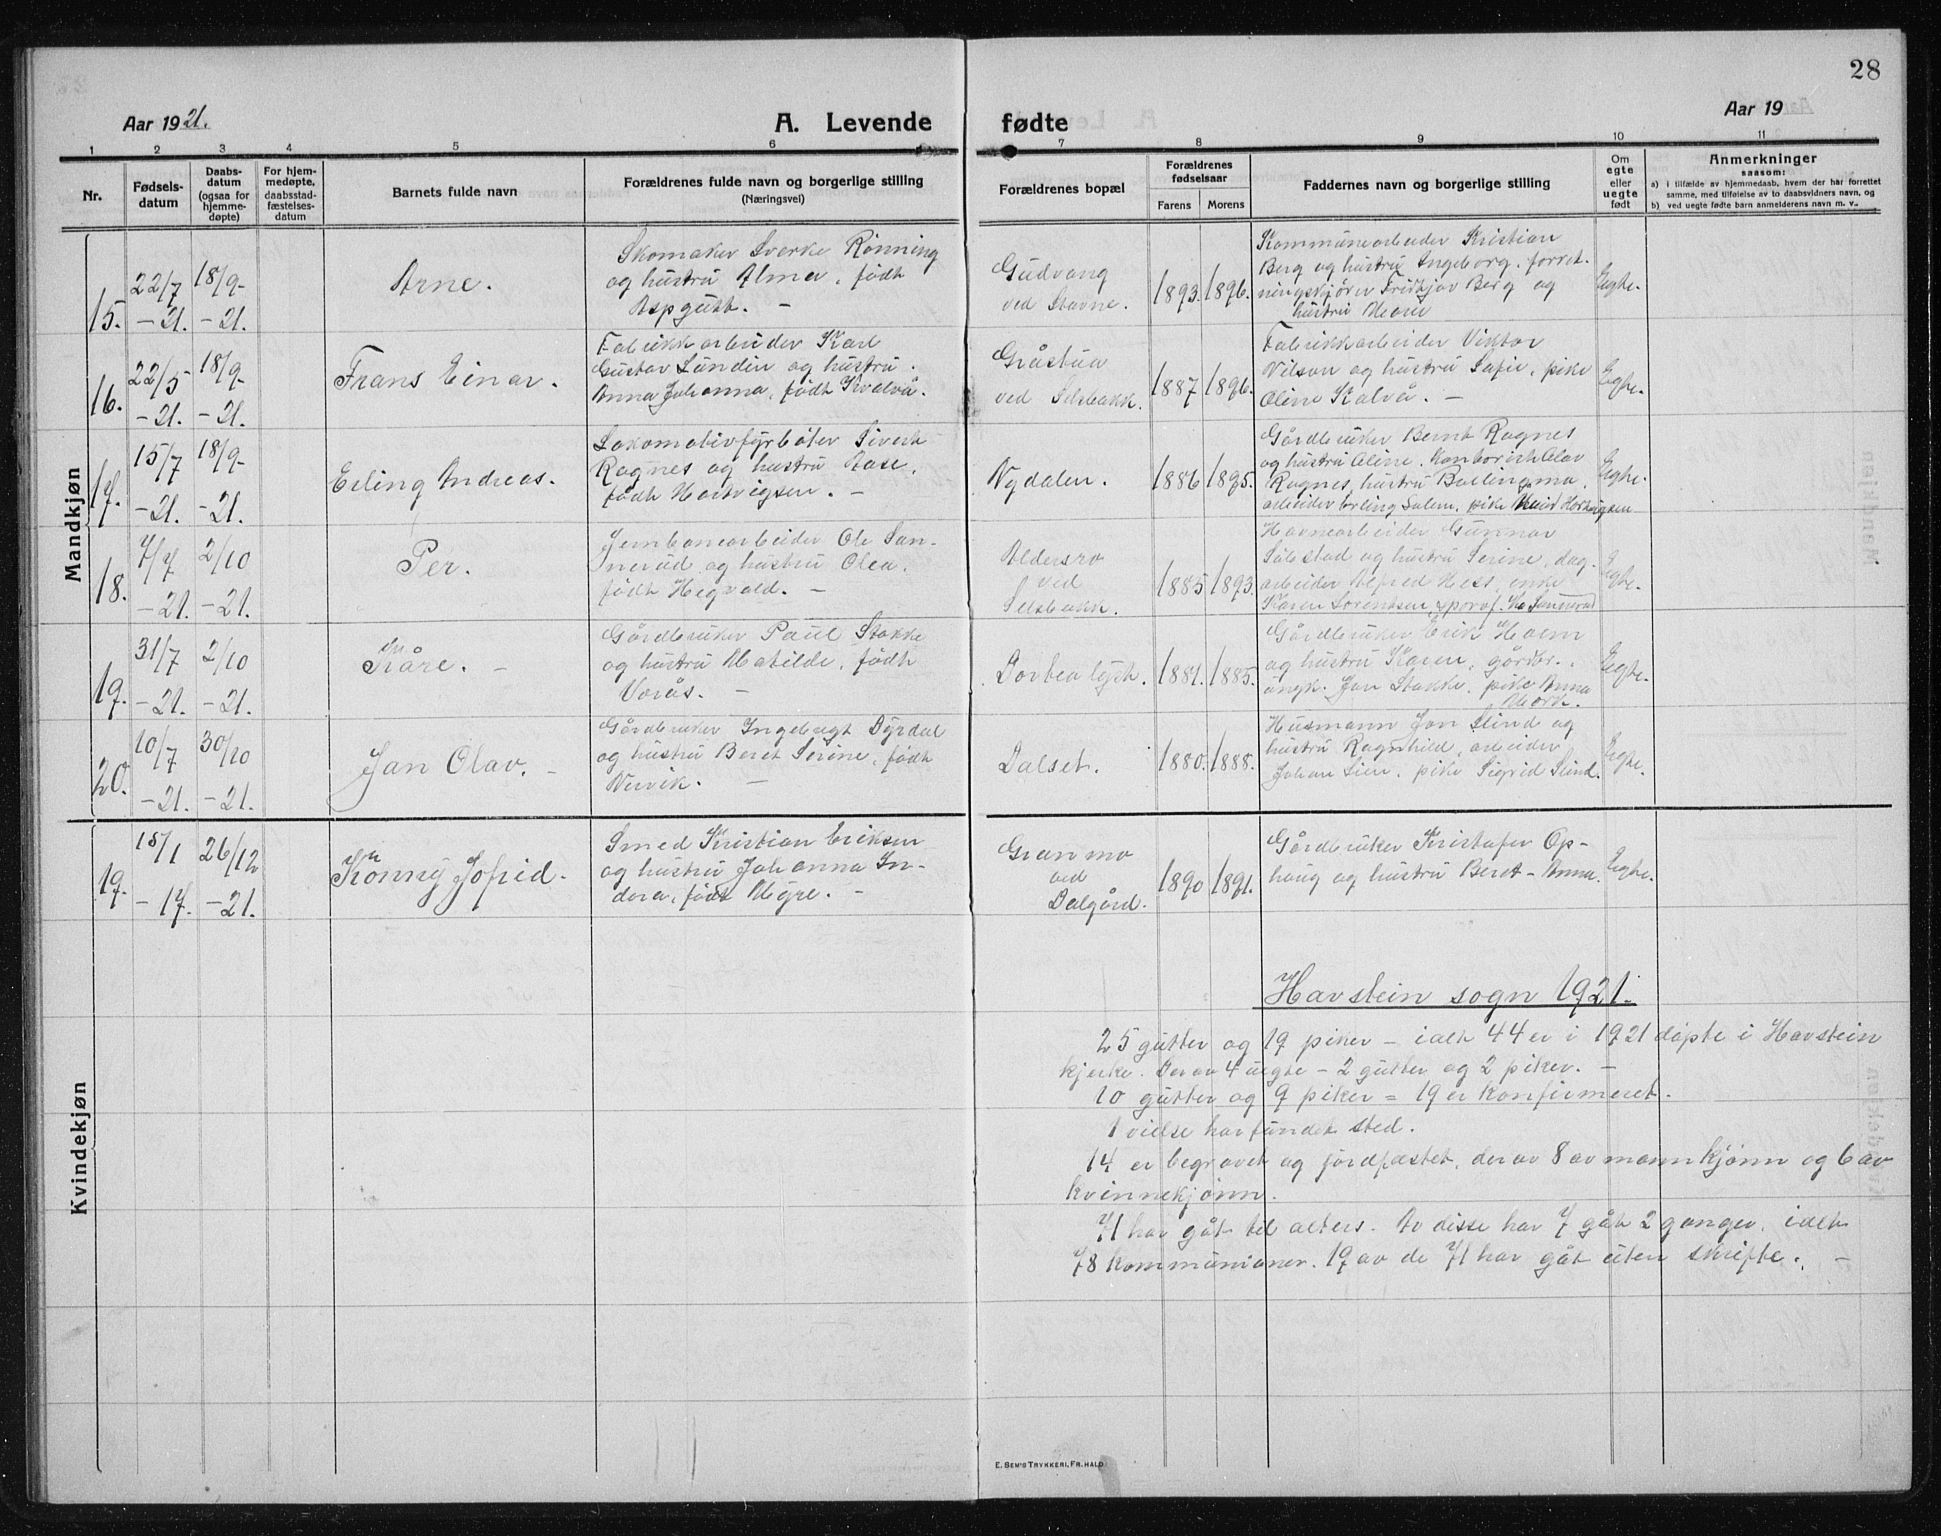 28
Aar 1921.
A. Levende fødte
Aar 19
1 2 3 4 5 6 7 8 9 10 11
Nr.
Fødsels-
datum
Daabs-
datum
(ogsaa for
hjemme-
døpte)
For hjem-
medøpte,
daabsstad-
fæstelses-
datum
Barnets fulde navn
Forældrenes fulde navn og borgerlige stilling
(Næringsvei)
Forældrenes bopæl
Forældrenes
fødselsaar
Farens Morens
Faddernes navn og borgerlige stilling
Om
egte
eller
uegte
født
Anmerkninger
saasom:
a) i tilfælde av hjemmedaab, hvem der har forrettet
samme, med tilføielse av to daabsvidners navn, og
b) ved uegte fødte barn anmelderens navn m. v.
Mandkjøn
15.
22/7
-21.
18/9-
-21.
Arne.
Skomaker Sverke Rønning
og hustru Alma, født
Aspgutt. -
Gudvang
ved Stavne.
1893. 1896.
Kommunearbeider Kristian
Berg og hustru Ingeborg, forret-
ningskjører Fridtjov Berg og
hustru
Egte.
16.
22/5
-21.
18/9-
-21.
Frans Einar.
Fabrikkarbeider Karl
Gustav Lundin og hustru
Anna Johanna, født Kvalvå.
Gråstua
ved Selsbakk.
1887 1896.
Fabrikkarbeider Viktor
Nilson og hustru Sofie, pike
Oline Kalvå. -
Egte.
17.
15/7
-21.
18/9-
-21.
Erling Andreas.
Lokomotivfyrbøter Sivert
Ragnes og hustru Aase,
født Hartvigsen. -
Nydalen.
1886 1895.
Gårdbruker Bernt Ragnes
og hustru Oline, kontorist Olav
Ragnes, hustru
arbeider Erling Salem, pike Hartvigsen
Egte.
18.
7/7
-21.
2/10
-21.
Per.
Jernbanearbeider Ole San-
nerud og hustru Olea,
født Hegvold. -
Aldersro
ved
Selsbakk.
1885 1893.
Havnearbeider Gunnar
Sæbstad og hustru Serine, dag-
arbeider Alfred Hess, enke
Karen Sørentsen,
Egte.
19.
31/7
-21.
2/10
-21.
Kåre. -
Gårdbruker Paul Stokke
og hustru Matilde, født
Vorås. -
Dortealyst.
1881. 1885.
Gårdbruker Erik Moen
og hustru Karen, gårdbr.,
ungk. Jon Stokke, pike Anna
Mork.
Egte.
20.
10/7
-21.
30/10
-21.
Jan Olav. -
Gårdbruker Ingebrigt Dyrdal
og hustru Beret Serine, født
Vervik. -
Dalset.
1880. 1888.
Husmann Jon Slind og
hustru Ragnhild, arbeider
Johan Lien, pike Sigrid Slind.
Egte.
Kvindekjøn
19.
15/1
-17.
26/12
-21.
Konny Jofrid.
Smed Kristian Eriksen
og hustru Johanna In-
dora, født Myre. -
Granmo
ved
Dalgård.
1890 1891.
Gårdbruker Kristofer Op-
haug og hustru Beret-Anna.
Egte.
Havstein sogn 1921.
25 gutter og 19 piker - ialt 44 er i 1921 døpte i Havstein
kjerke. Derav 4 uegte - 2 gutter og 2 piker. -
10 gutter og 9 piker = 19 er konfirmeret.
1 vielse har fundet sted.
14 er begravet og jordfæstet, derav 8 av mannkjønn og 6 av
kvinnekjønn.
71 har gåt til alters. Av disse har 7 gåt 2 ganger, ialt
78 kommunioner. 19 av de 71 har gåt uten skrifte. -
E. SEM'S TRYKKERI, FR.HALD